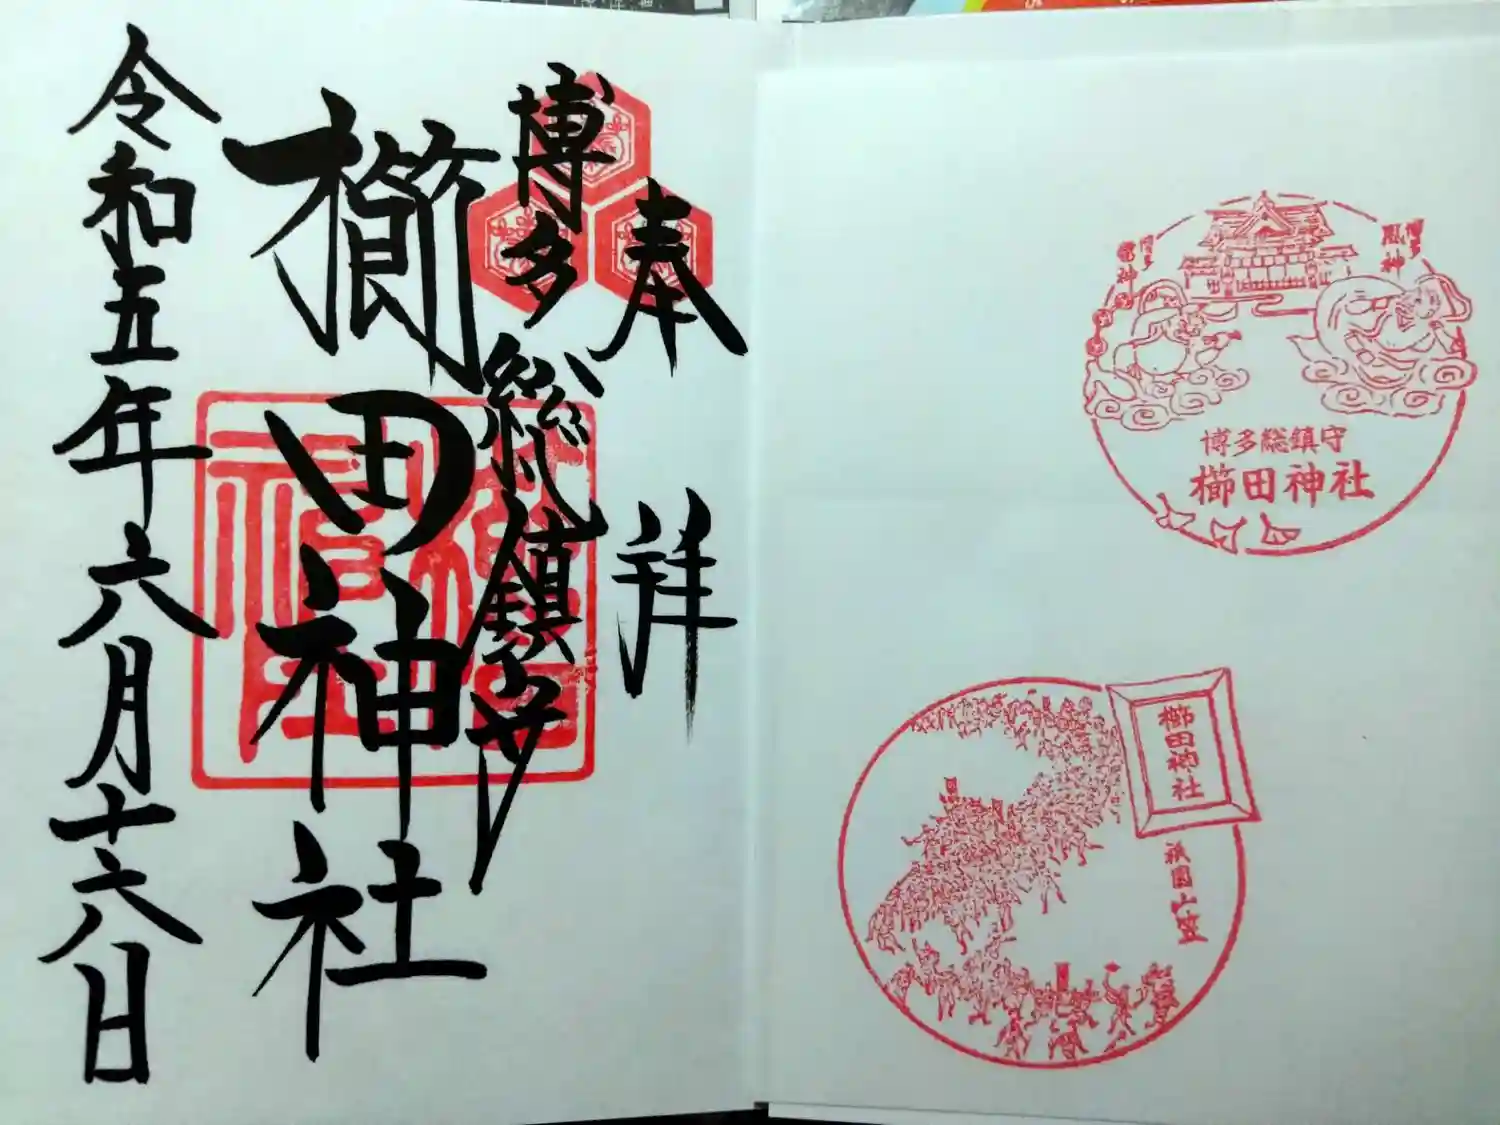 奉拝
博多総鎮守
櫛田神社
令和五年六月十六日
博多
雷神
博多
風神
博多総鎮守
櫛田神社
櫛田神社
祇園山笠